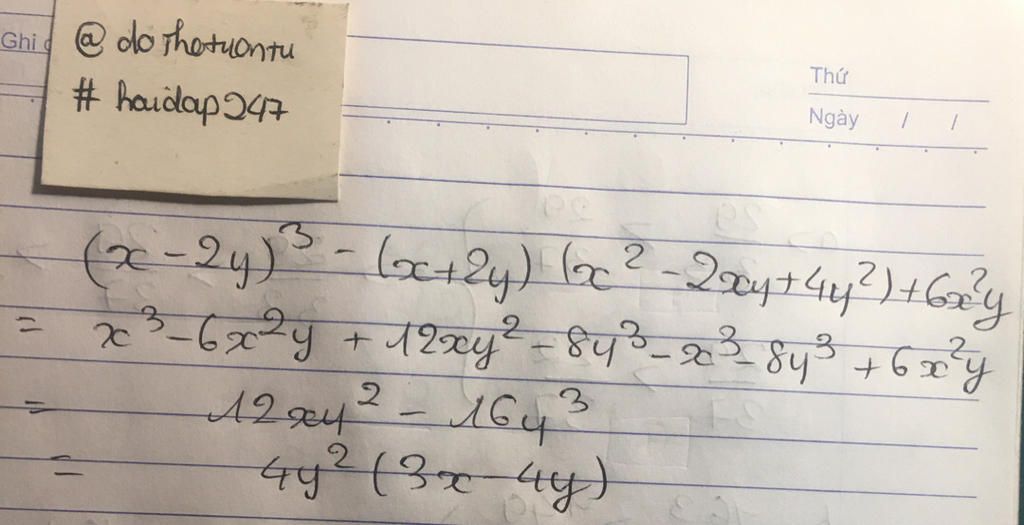 Ghi
@ doThotuontu
# hoidap247
Thứ
Ngày / /
(x - 2y)³ - (x+2y) (x² - 2xy+4y²) + 6x²y
= x³ - 6x²y + 12xy² - 8y³ - x³ - 8y³ + 6x²y
= 12xy² - 16y³
= 4y² (3x - 4y)